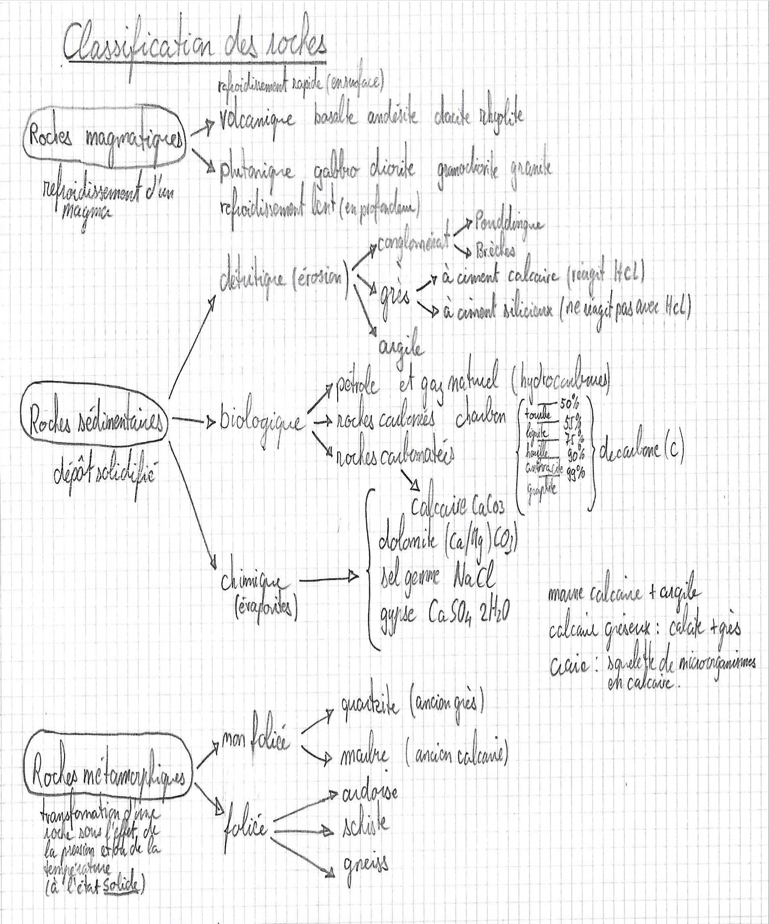 Classification des roches
refroidissement rapide (en surface)
Roches magmatiques
volcanique basalte andésite dacite rhyolite
plutonique gabbro diorite granodiorite granite
refroidissement d'un
magma
refroidissement lent (en profondeur)
détritique (érosion)
conglomérat
Pouddingue
Brèches
grès
à ciment calcaire (réagit HCL)
à ciment silicieux (ne réagit pas avec HCL)
argile
Roches sédimentaires
dépôt solidifié
biologique
pétrole et gaz naturel (hydrocarbures)
roches carbonées charbon
roches carbonatées
tourbe 50%
lignite 55%
houille 75%
anthracite 90%
graphite 99%
de carbone (C)
calcaire CaCO3
dolomite (Ca/Mg) CO3)
chimique
(évaporites)
sel gemme NaCl
gypse CaSO4 2H2O
marne calcaire + argile
calcaire gréseux : calcite + grès
craie : squelette de microorganismes
en calcaire.
Roches métamorphiques
transformation d'une
roche sous l'effet de
la pression et/ou de la
température
(à l'état solide)
non folicé
quartzite (ancien grès)
marbre (ancien calcaire)
folicé
ardoise
schiste
gneiss